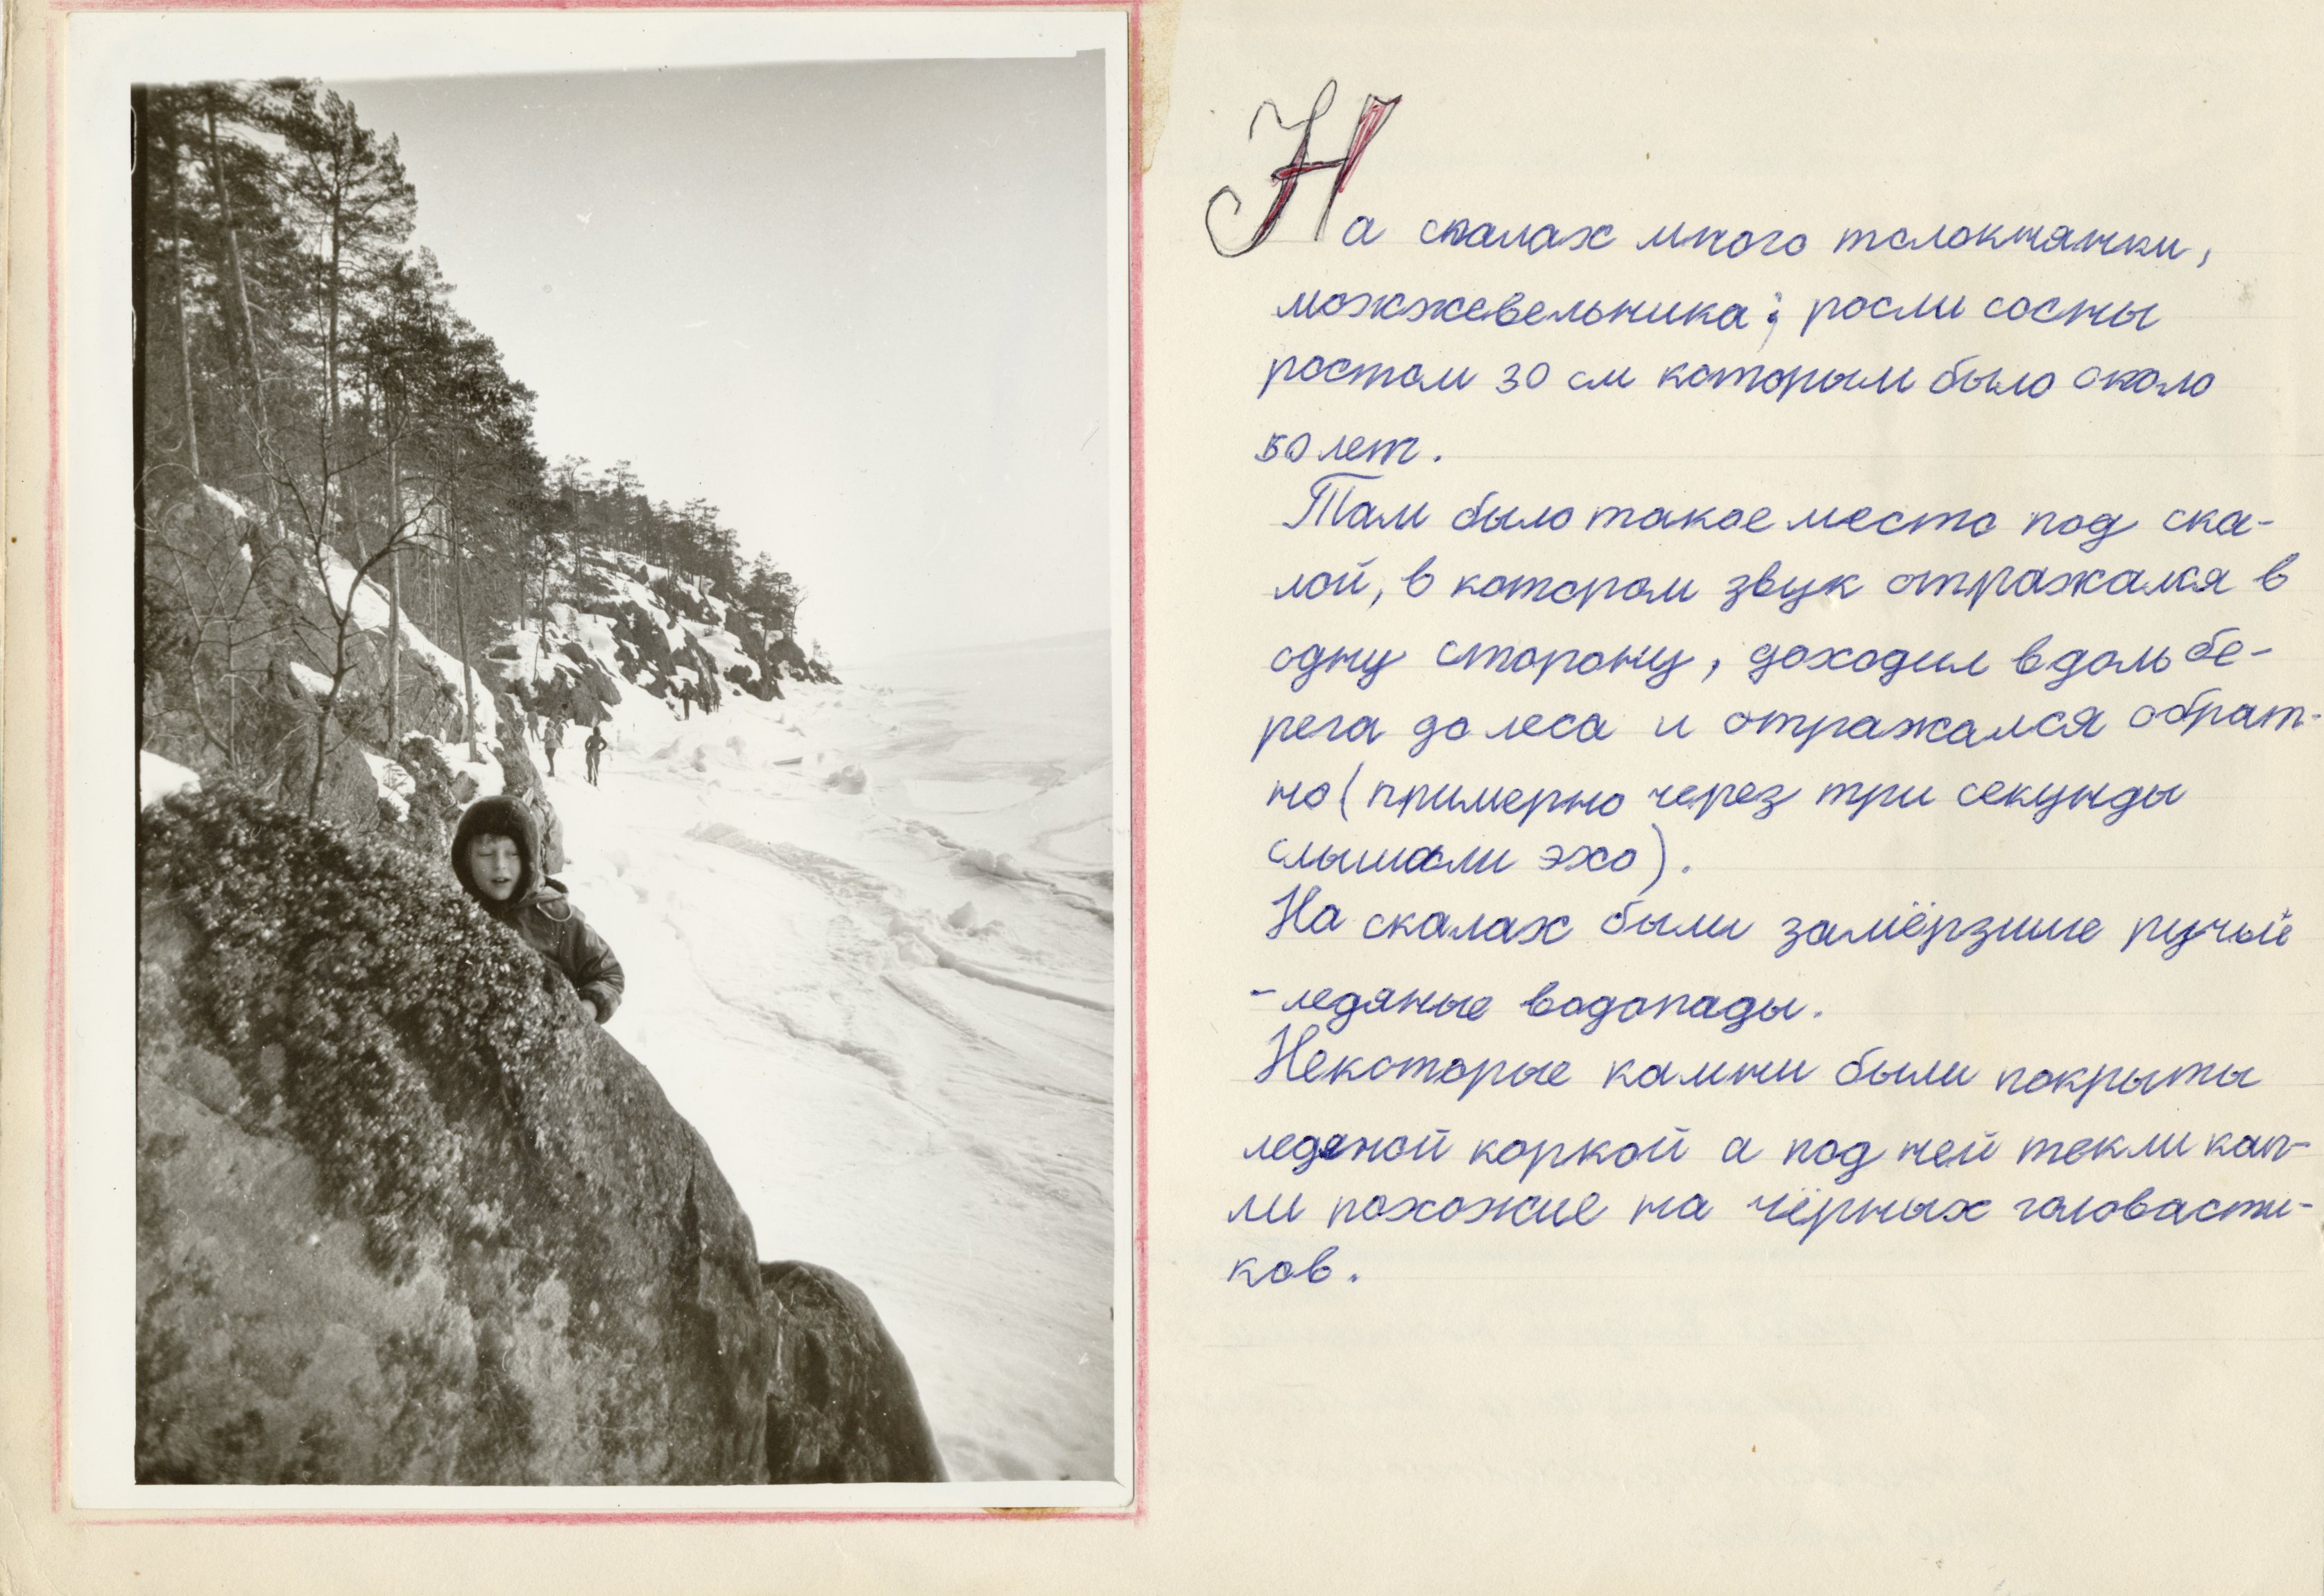 На скалах много толокнянки,
можжевельника; росли сосны
ростом 30 см которым было около
50 лет.
Там было такое место под ска-
лой, в котором звук отражался в
одну сторону, доходил вдоль бе-
рега до леса и отражался обрат-
но (примерно через три секунды
слышали эхо).
На скалах были замёрзшие ручьи
- ледяные водопады.
Некоторые камни были покрыты
ледяной коркой а под ней текли кап-
ли похожие на чёрных головасти-
ков.